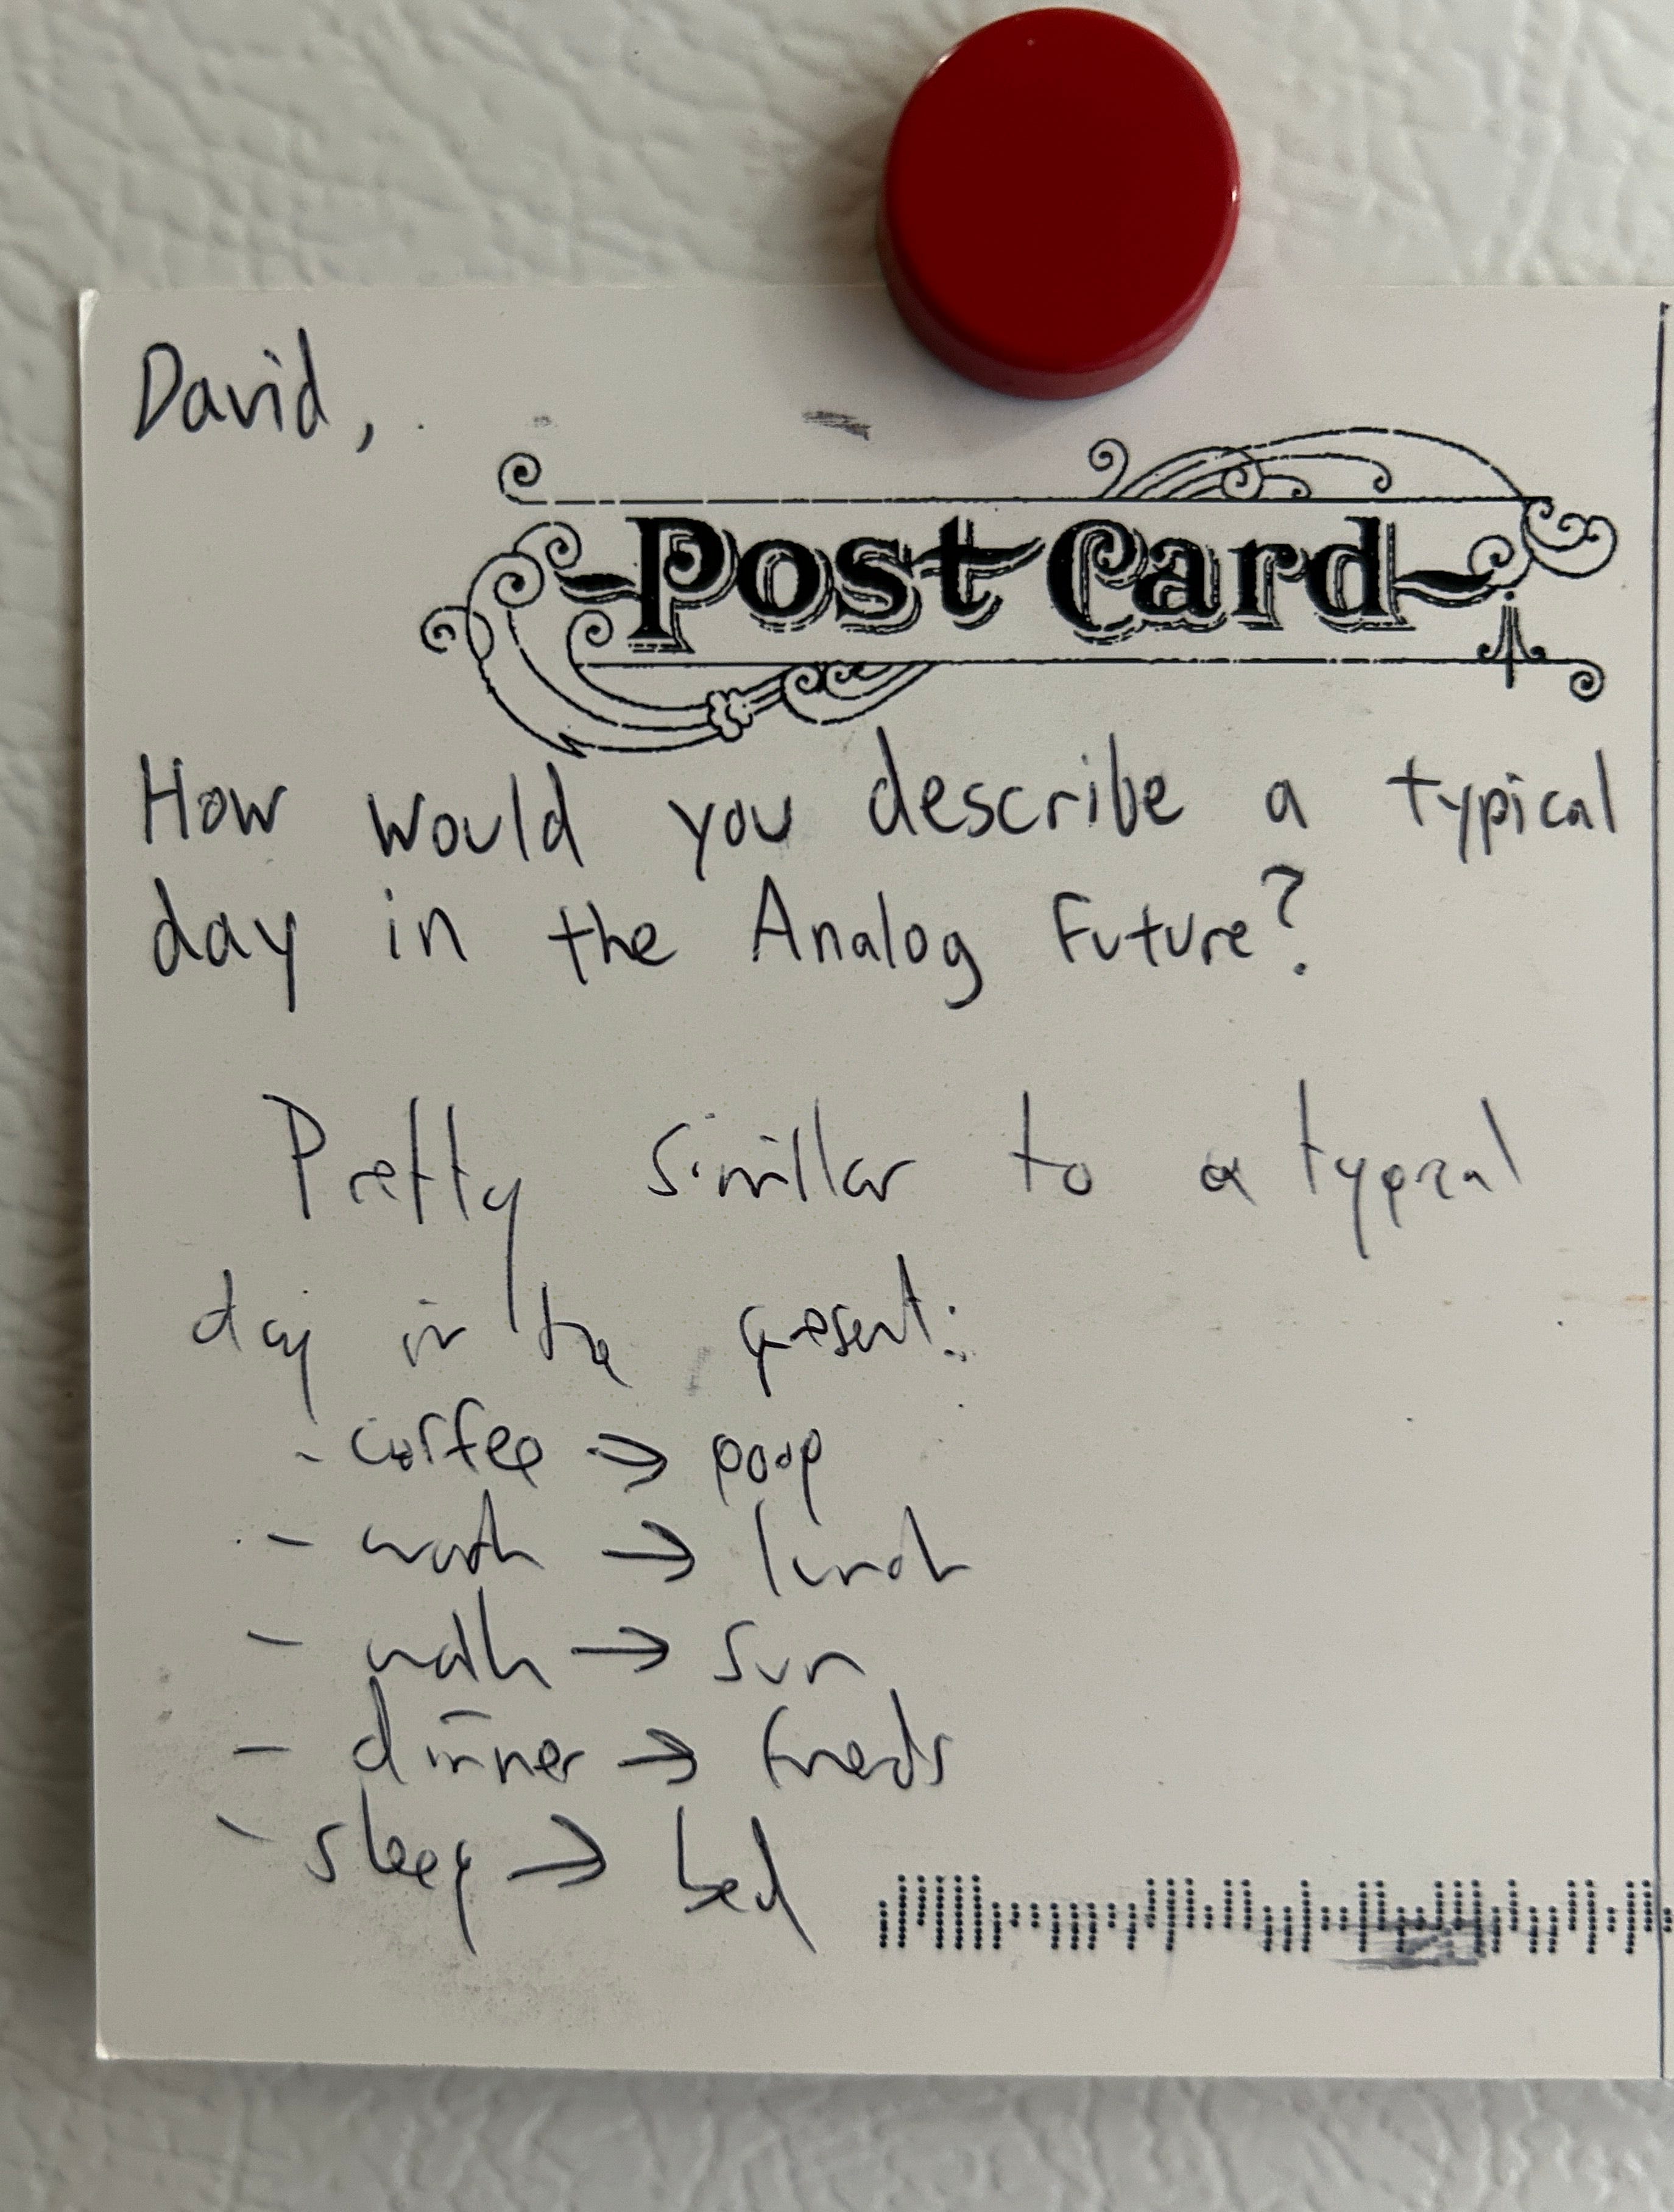 David,
Post Card
How would you describe a typical
day in the Analog Future?
Pretty similar to a typical
day in the present:
- coffee → poop
- work → lunch
- walk → sun
- dinner → friends
- sleep → bed